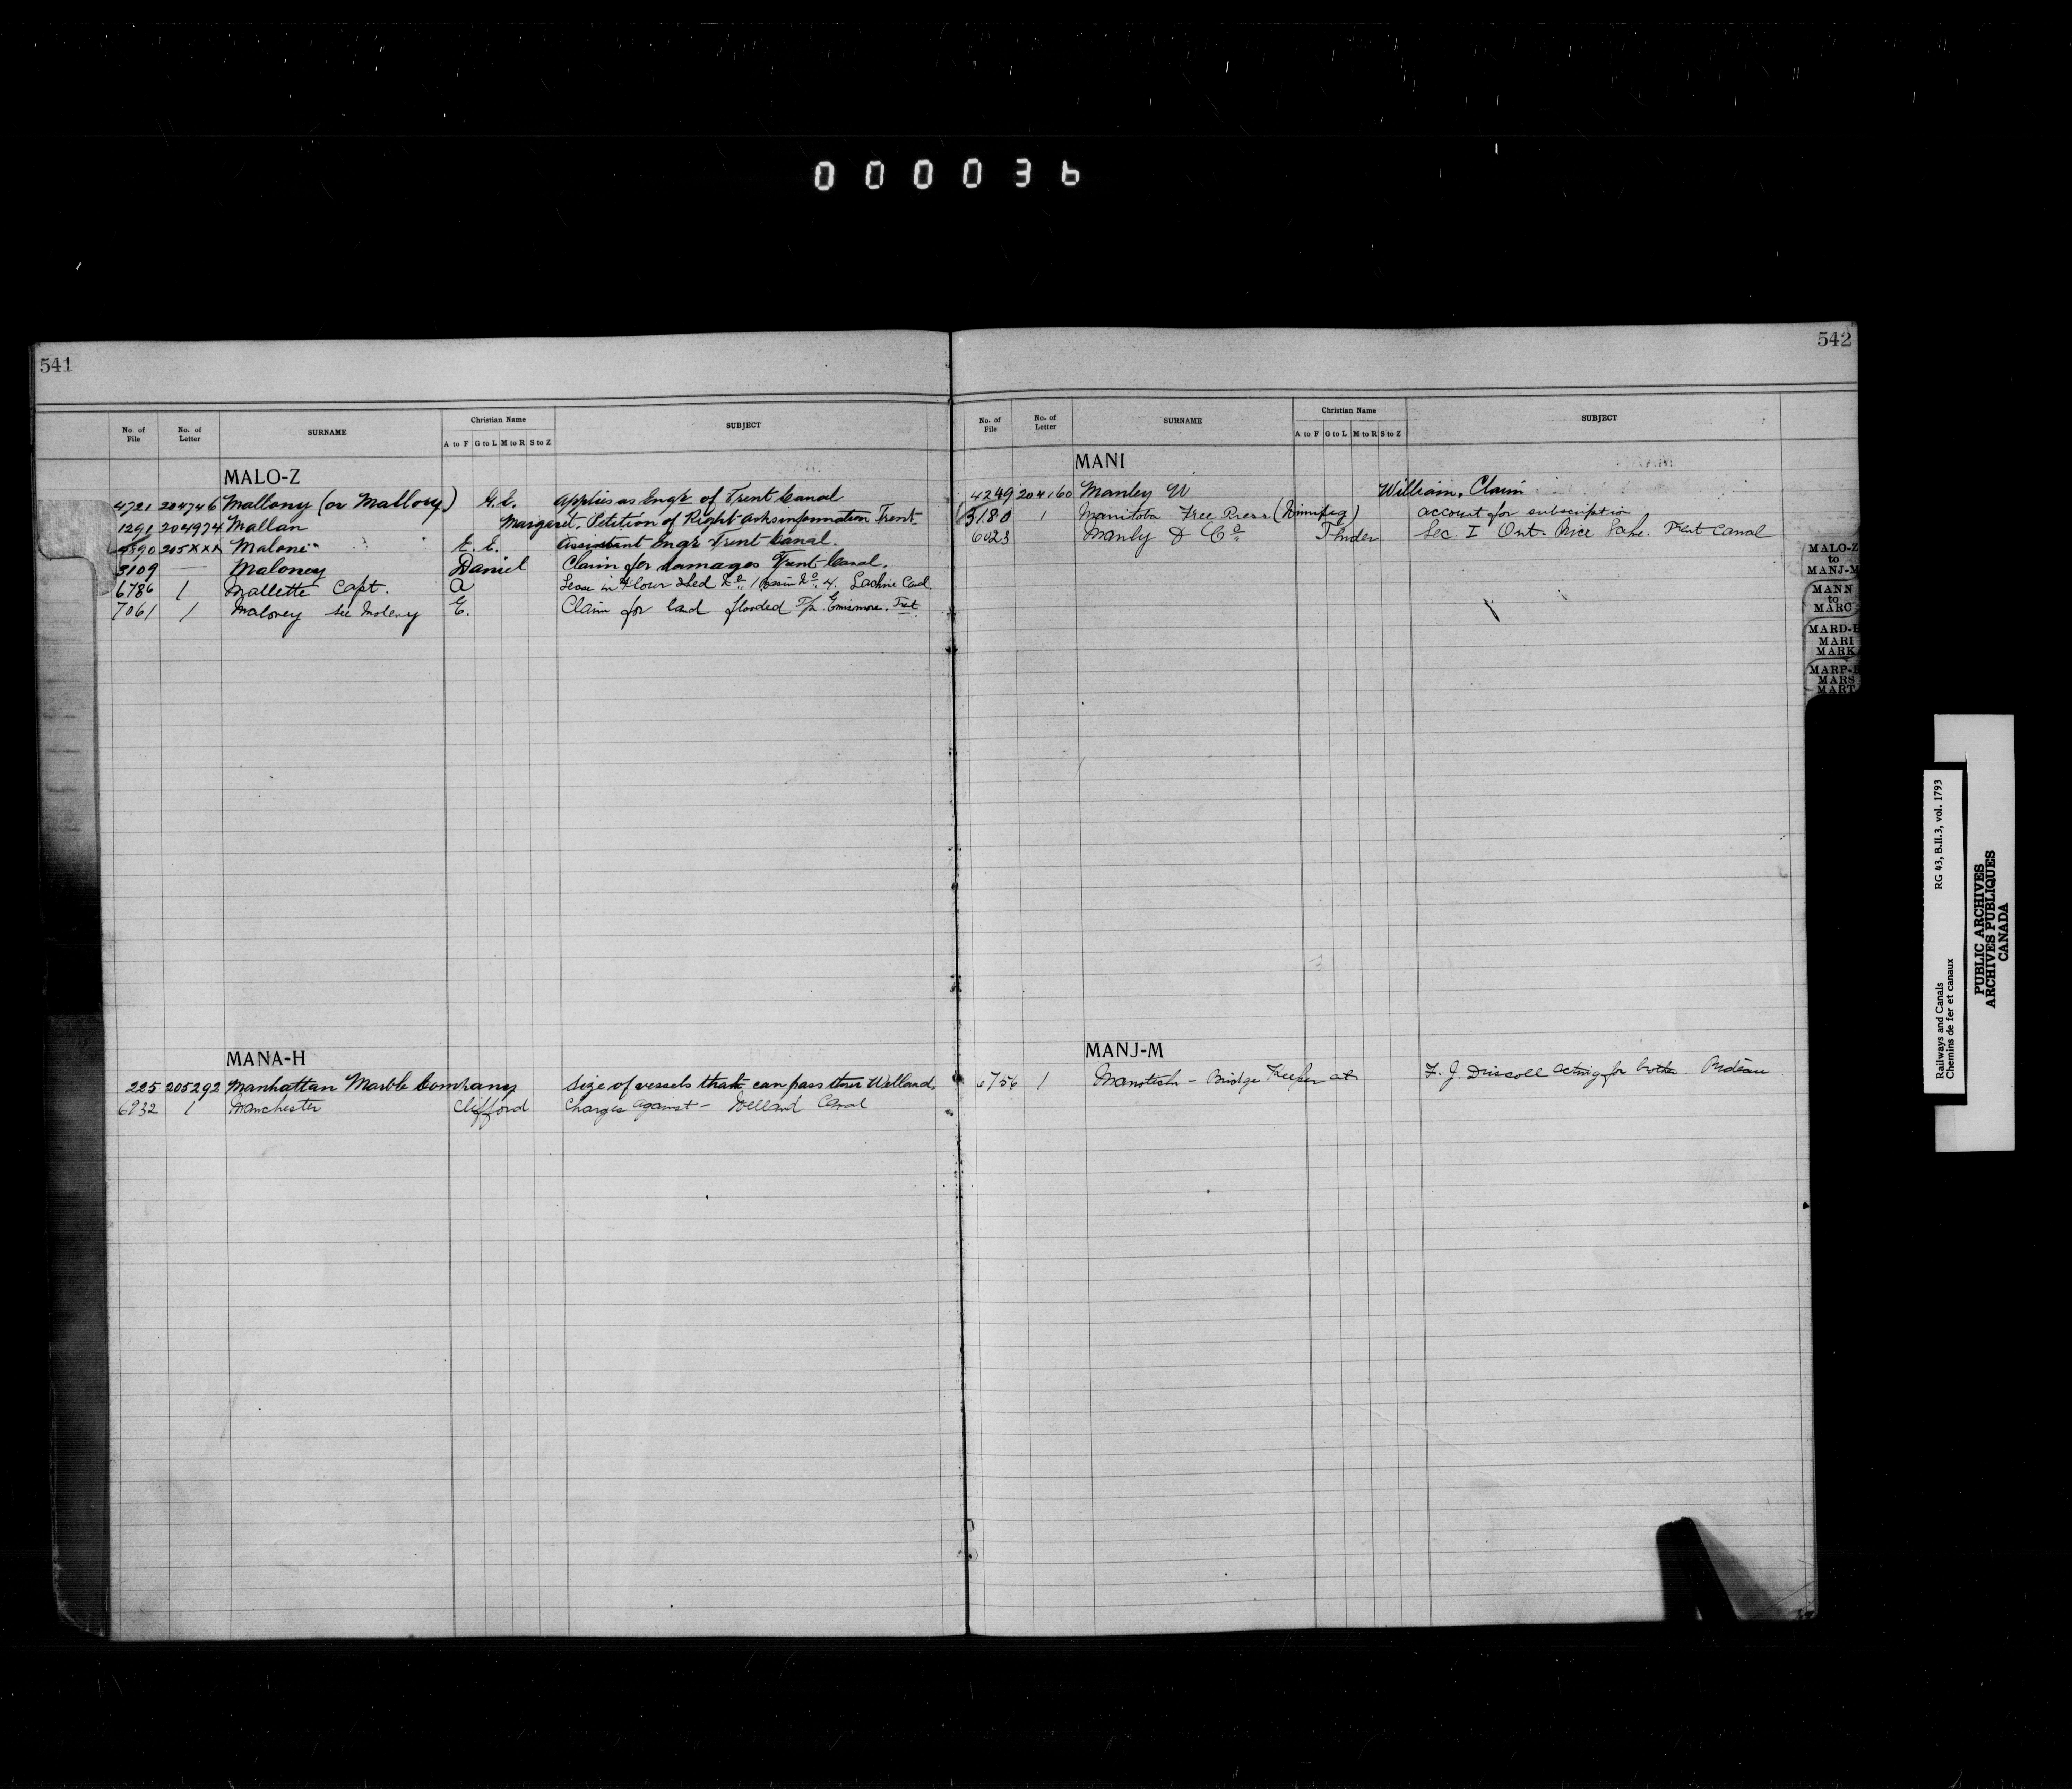 000036
541
No. of File No. of Letter SURNAME Christian Name A to F G to L M to R S to Z SUBJECT
MALO-Z
4721 204746 Mallony (or Mallory) G.E. Applies as Engr of Trent Canal
1291 204974 Mallan Margaret, Petition of Right-asks information Trent
4890 205XXX Malone E. E. Assistant Engr Trent Canal.
3109 — Maloney Daniel Claim for damages Trent Canal.
6786 1 Mallette Capt. A Lease in Flour Shed No. 1 Basin No. 4. Lachine Canl
7061 1 Maloney see Moleny E. Claim for land flooded Tp. Ennismore. Trt
MANA-H
225 205292 Manhattan Marble Company Size of vessels that can pass thru Welland
6932 1 Manchester Clifford Charges against - Welland Canal
542
No. of File No. of Letter SURNAME Christian Name A to F G to L M to R S to Z SUBJECT
MANI
4249 204160 Manley W William, Claim
5180 1 Manitoba Free Press (Winnipeg) account for subscription
6023 Manly & Co. Sec. I Ont. Rice Lake. Trent Canal
MANJ-M
6756 1 Manotick - Bridge Keeper at F. J. Driscoll acting for brother Rideau
MALO-Z
to
MANJ-M
MANN
to
MARC
MARD-H
MARI
MARK
MARP-R
MARS
MART
Railways and Canals RG 43, B.II.3, vol. 1793
Chemins de fer et canaux
PUBLIC ARCHIVES
ARCHIVES PUBLIQUES
CANADA